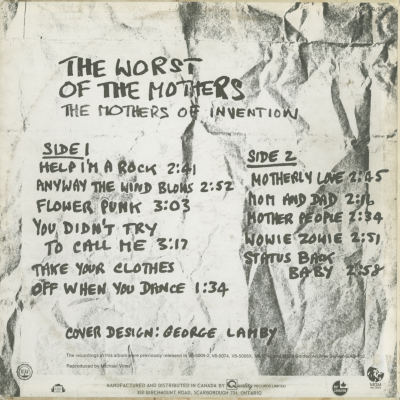 THE WORST
OF THE MOTHERS
THE MOTHERS OF INVENTION
SIDE 1
HELP I'M A ROCK 2:41
ANYWAY THE WIND BLOWS 2:52
FLOWER PUNK 3:03
YOU DIDN'T TRY
TO CALL ME 3:17
TAKE YOUR CLOTHES
OFF WHEN YOU DANCE 1:34
SIDE 2
MOTHERLY LOVE 2:45
MOM AND DAD 2:16
MOTHER PEOPLE 2:34
WOWIE ZOWIE 2:51
STATUS BACK
BABY 2:58
COVER DESIGN: GEORGE LAMBY
The recordings in this album were previously released in
Reproduced by Michael
MANUFACTURED AND DISTRIBUTED IN CANADA BY Quality RECORDS LIMITED
380 BIRCHMOUNT ROAD, SCARBOROUGH 734, ONTARIO
MGM